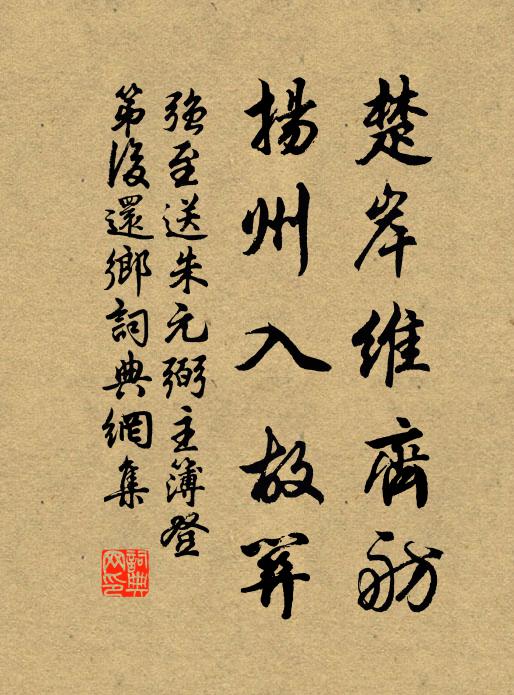 楚岸維齊舫
揚州入故
強至送朱元弼主簿登
第後還鄉詞典網集
詞典网印